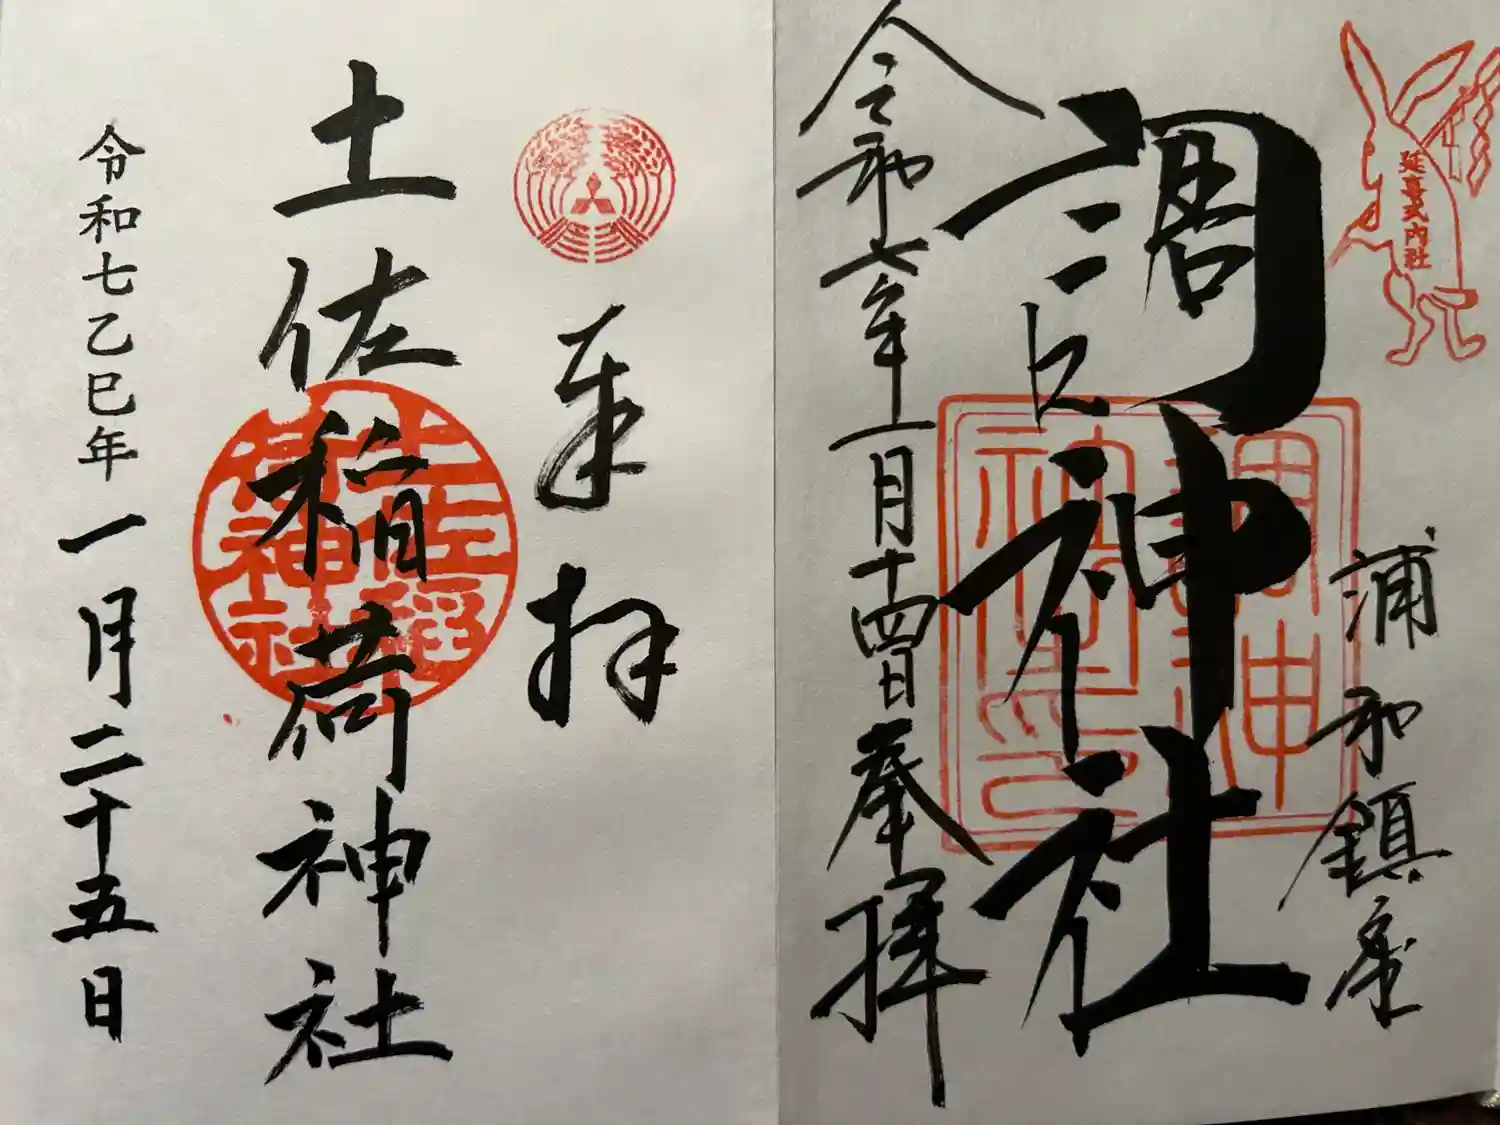 浦和鎮座
延喜式内社
調神社
調神社神璽之印
令和七年一月十四日奉拝
奉拝
土佐稲荷神社
令和七乙巳年一月二十五日